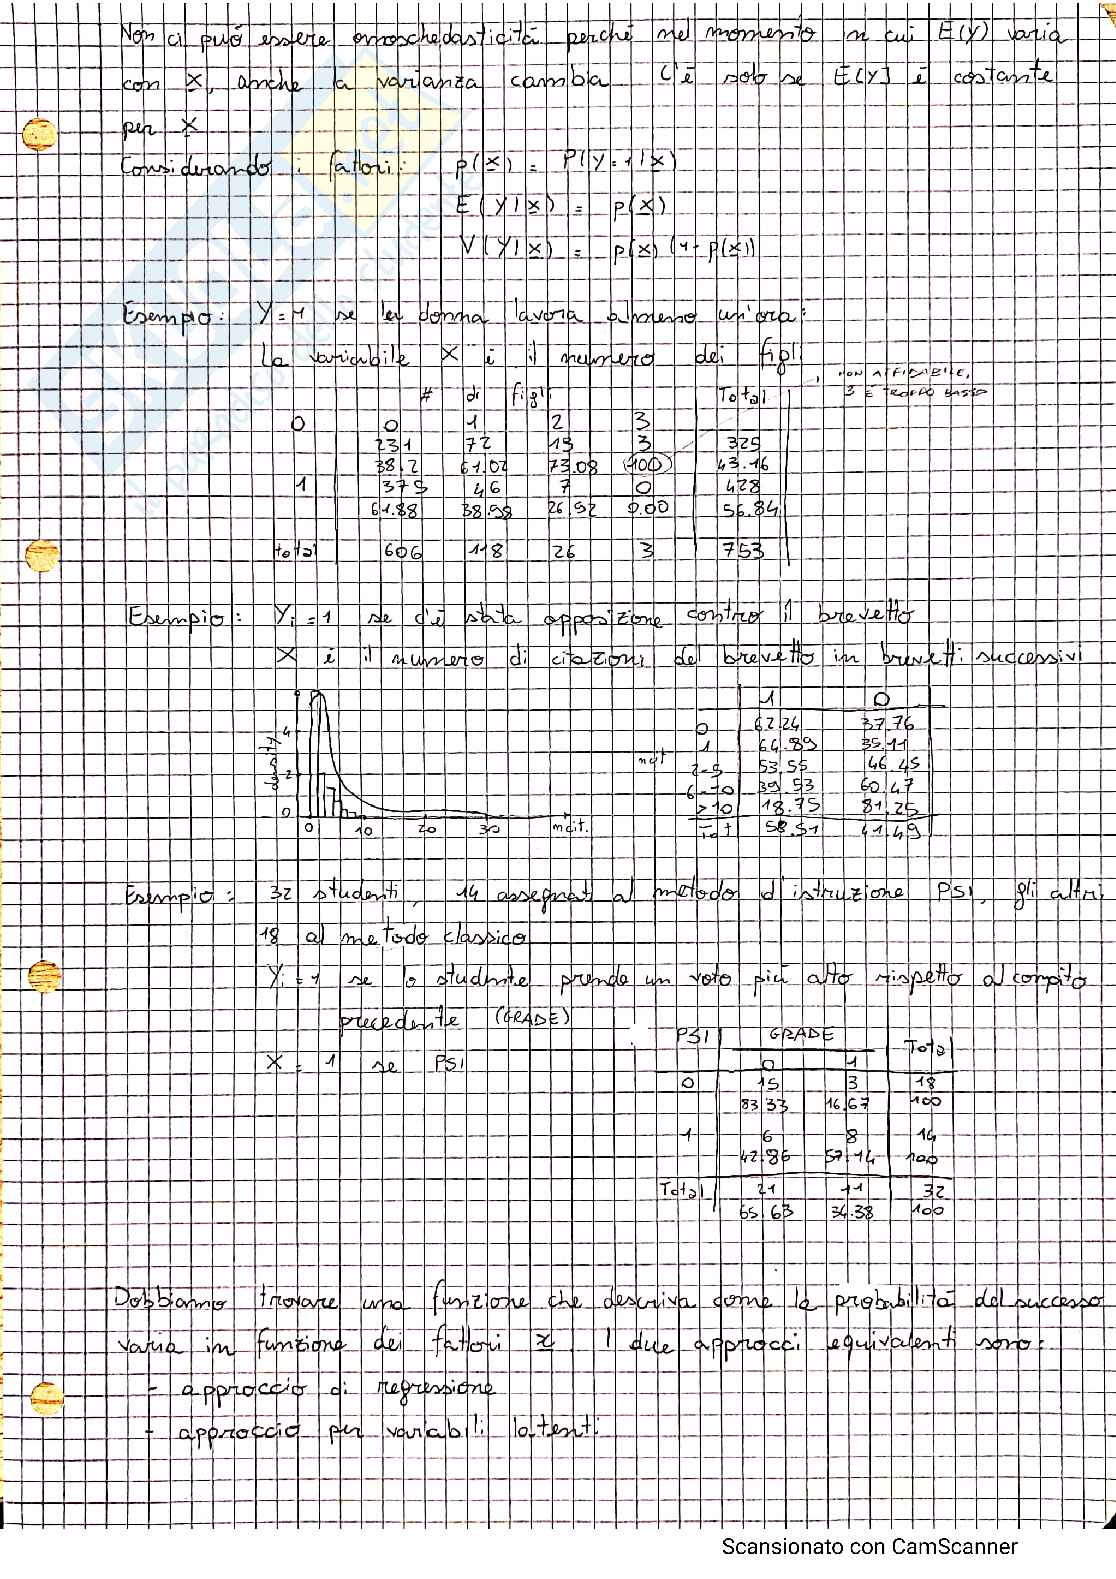 Non ci può essere omoschedasticità perché nel momento in cui E(Y) varia
con X, anche la varianza cambia. C'è solo se E[Y] è costante
per X
Considerando i fattori: p(x) = P(Y=1|x)
E(Y|x) = p(x)
V(Y|x) = p(x) (1-p(x))
Esempio: Y=1 se la donna lavora almeno un'ora;
la variabile X è il numero dei figli
NON AFFIDABILE,
3 È TROPPO BASSO
# di figli Total
0 0 1 2 3
231 72 19 3 325
38.2 61.02 73.08 100 43.16
1 375 46 7 0 428
61.88 38.98 26.92 0.00 56.84
total 606 118 26 3 753
Esempio: Yi=1 se c'è stata opposizione contro il brevetto
X è il numero di citazioni del brevetto in brevetti successivi
1 0
0 62.24 37.76
1 64.89 35.11
ncit 2-5 53.55 46.45
6-10 39.53 60.47
>10 18.75 81.25
Tot 58.51 41.49
density
4
2
0
0 10 20 30 ncit.
Esempio: 32 studenti, 14 assegnati al metodo d'istruzione PSI, gli altri
18 al metodo classico
Yi=1 se lo studente prende un voto più alto rispetto al compito
precedente (GRADE)
X=1 se PSI
PSI GRADE Total
0 1
0 15 3 18
83.33 16.67 100
1 6 8 14
42.86 57.14 100
Total 21 11 32
65.63 34.38 100
Dobbiamo trovare una funzione che descriva come la probabilità del successo
varia in funzione dei fattori x I due approcci equivalenti sono:
- approccio di regressione
- approccio per variabili latenti
Scansionato con CamScanner